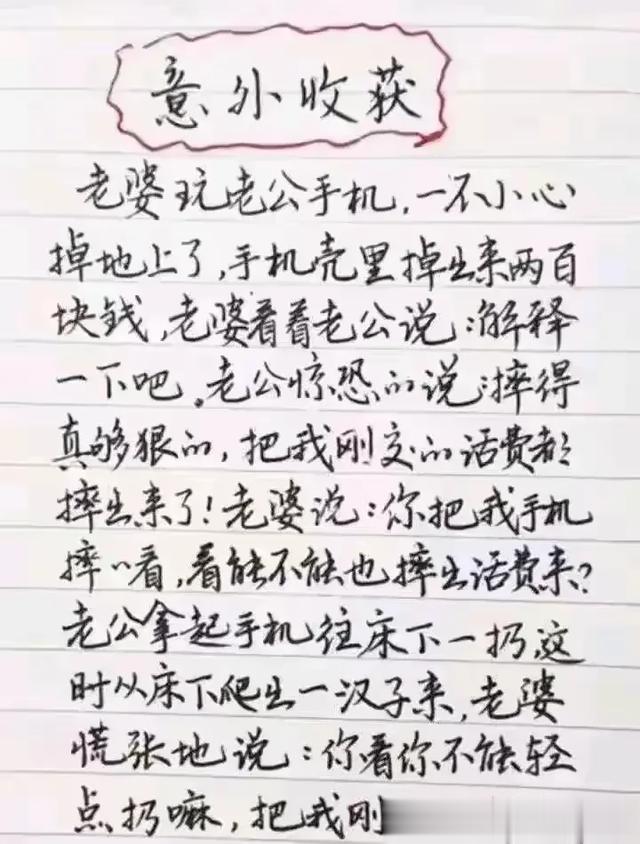 意外收获
老婆玩老公手机,一不小心
掉地上了,手机壳里掉出来两百
块钱,老婆看着老公说:解释
一下吧。老公惊恐的说:摔得
真够狠的,把我刚交的话费都
摔出来了!老婆说:你把我手机
摔〃看,看能不能也摔出话费来?
老公拿起手机往床下一扔,这
时从床下爬出一汉子来,老婆
慌张地说:你看你不能轻
点扔嘛,把我刚